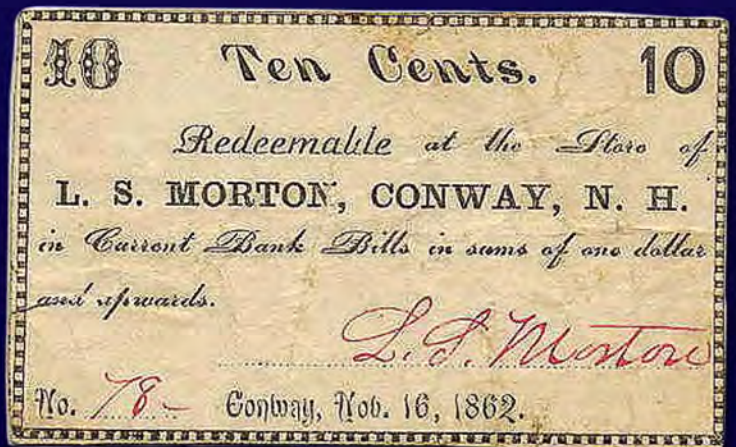 10 Ten Cents. 10
Redeemable at the Store of
L. S. MORTON, CONWAY, N. H.
in Current Bank Bills in sums of one dollar
and upwards.
L. S. Morton
No. 78- Conway, Nov. 16, 1862.